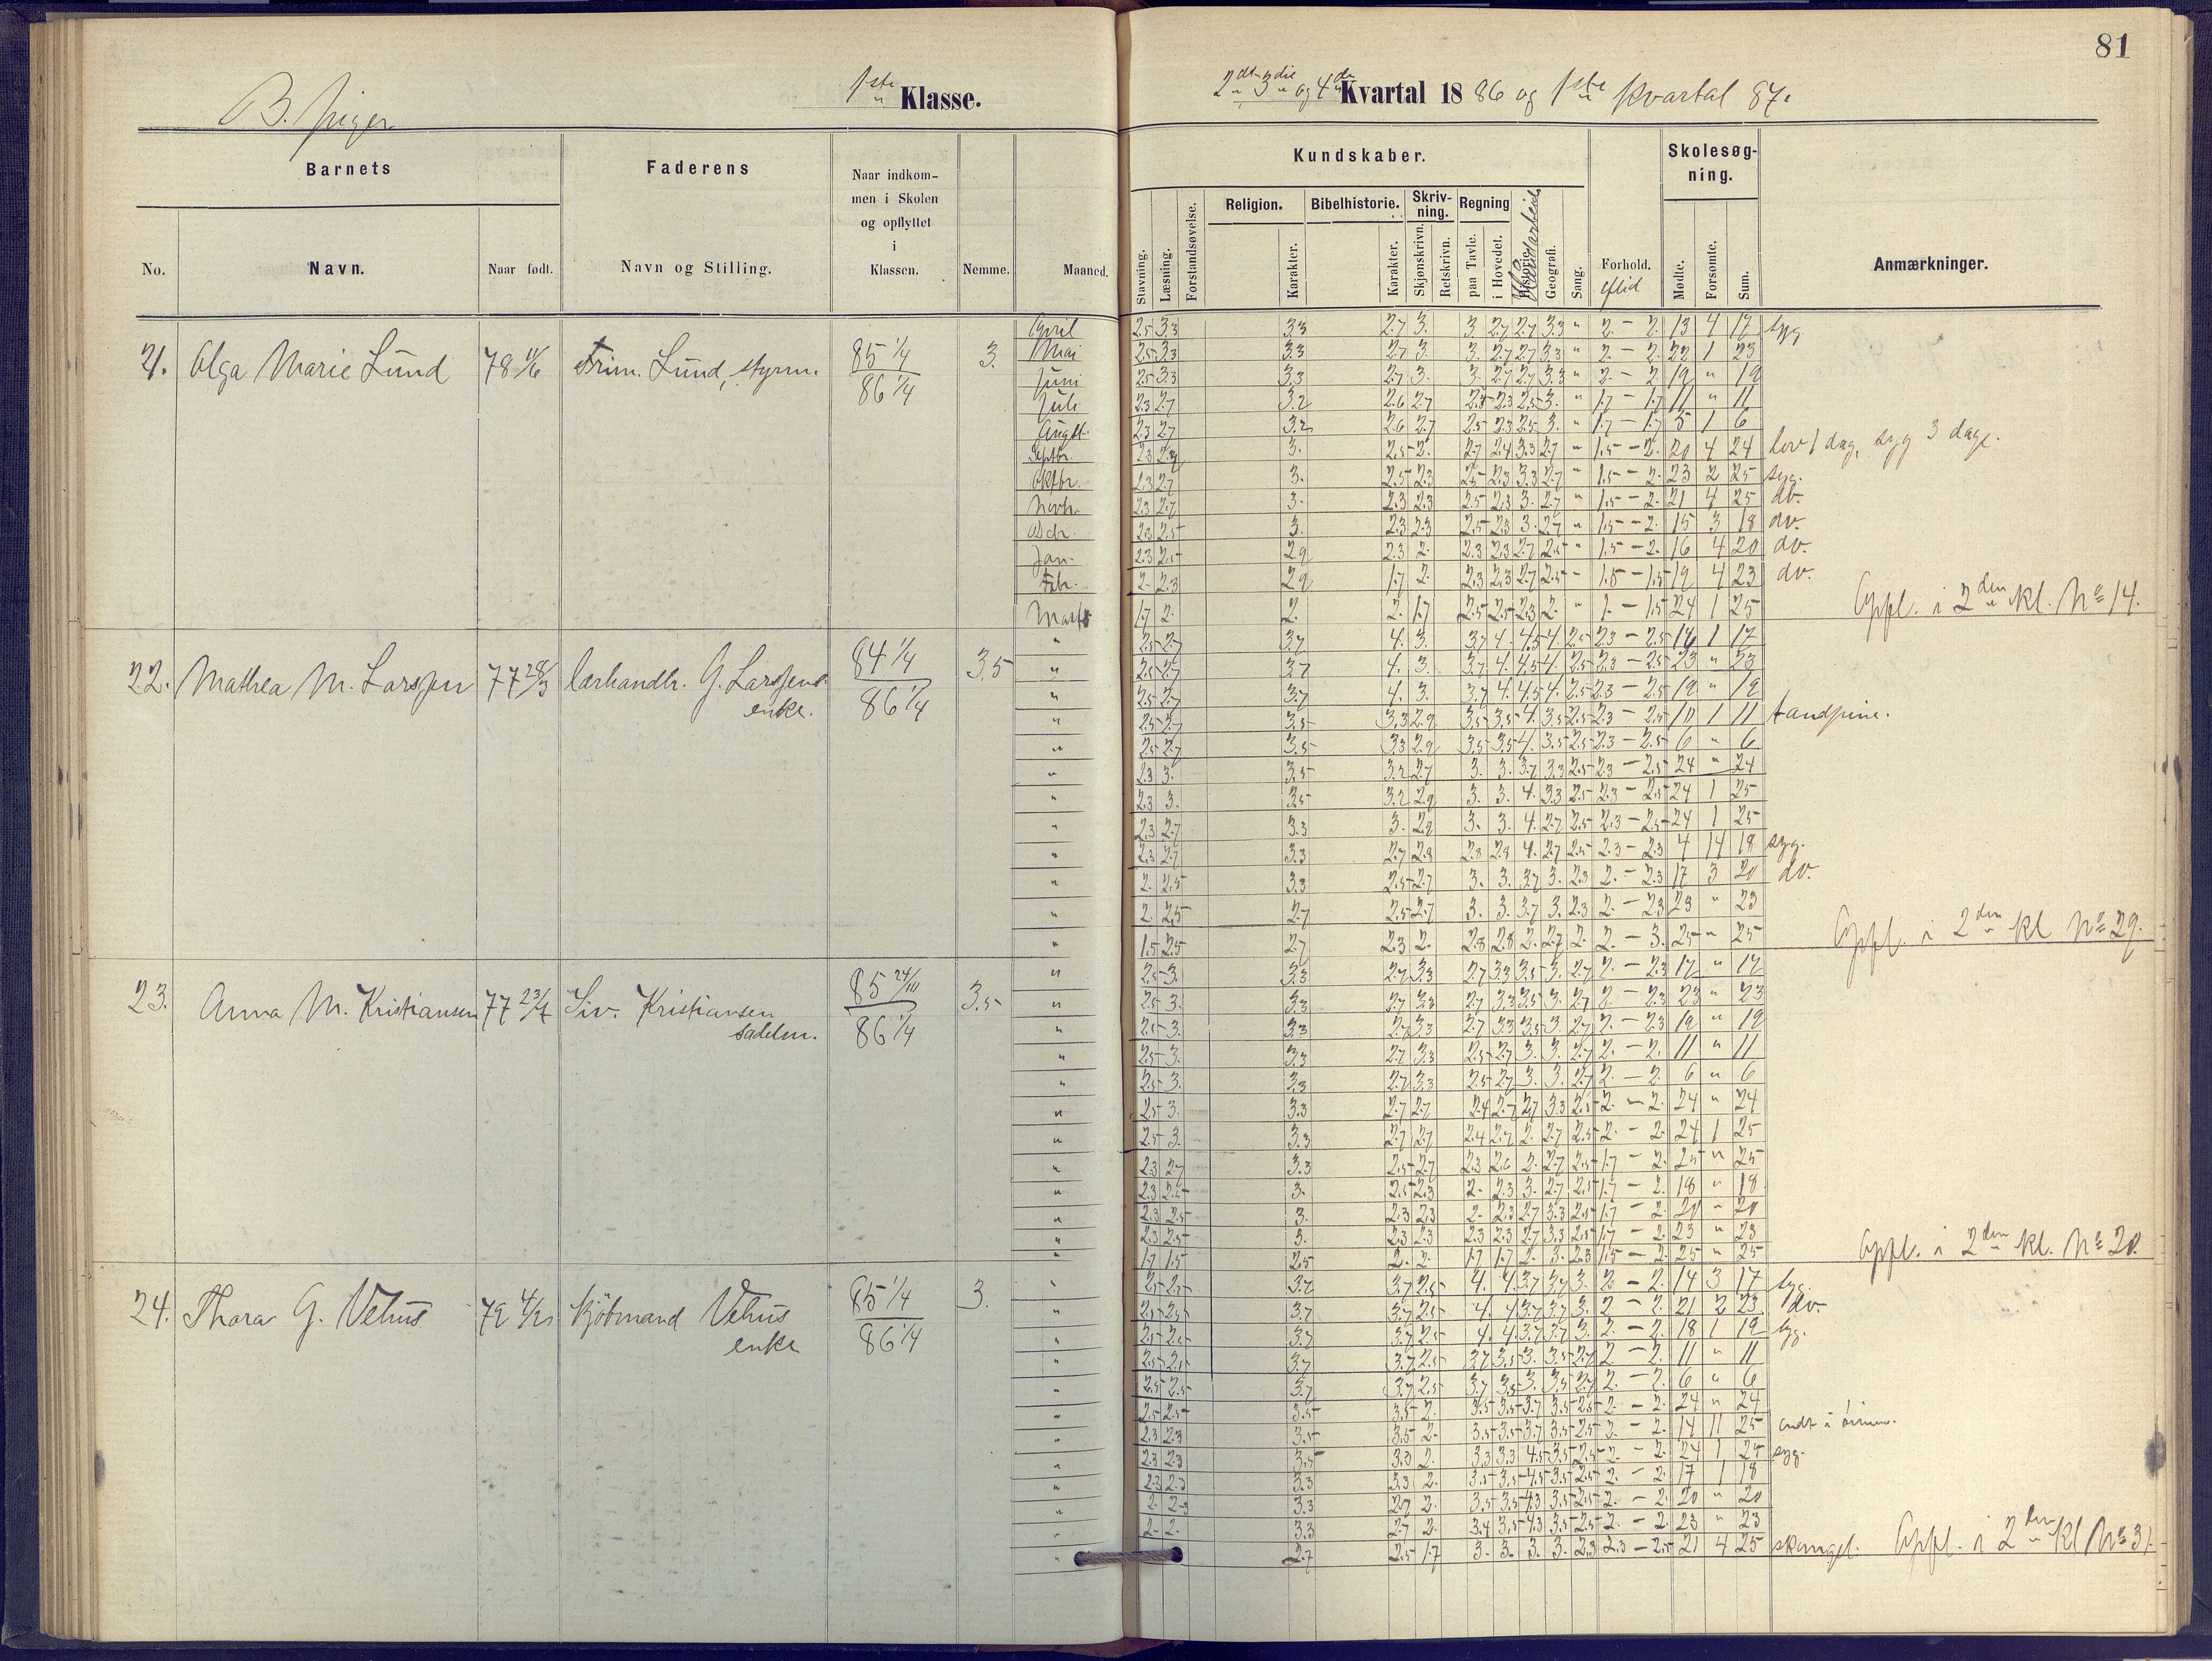 81
B. Piger
1ste Klasse.
2det 3die og 4de Kvartal 1886 og 1ste Kvartal 87.
Barnets
Faderens
Naar indkom-
men i Skolen
og opflyttet
i
Klassen.
No.
Navn.
Naar født.
Navn og Stilling.
Nemme.
Maaned.
Kundskaber.
Skolesøg-
ning.
Religion.
Bibelhistorie.
Skriv-
ning.
Regning
Stavning.
Læsning.
Forstandsøvelse.
Karakter.
Karakter.
Skjønskrivn.
Retskrivn.
paa Tavle.
i Hovedet.
Historie.
Haandarbeide
Geografi.
Sang.
Forhold.
Flid
Mødte.
Forsømte.
Sum.
Anmærkninger.
21. Olga Marie Lund 78 11/6 Trim. Lund, styrm. 85 1/4 86 1/4 3.
April 2.5 3.3 3.3 2.7 3. 3 2.7 2.7 3.3 " 2. - 2. 13 4 17 syg.
Mai 2.5 3.3 3.3 2.7 3. 3. 2.7 2.7 3.3 " 2. - 2. 22 1 23
Juni 2.5 3.3 3.3 2.7 3. 3. 2.7 2.7 3.3 " 2. - 2. 19 " 19
Juli 2.3 2.7 3.2 2.6 2.7 2.3 2.5 3. " 1.7 - 1.7 11 " 11
Augst. 2.3 2.7 3.2 2.6 2.7 2.5 2.3 2.5 3. " 1.7 - 1.7 5 1 6
Septbr. 2.3 3. 2.5 2. 2.7 2.4 3.3 2.7 " 1.5 - 2. 20 4 24 lov 1 dag, syg 3 dage.
Oktbr. 2.3 2.7 3. 2.5 2.3 2.5 2.3 3.3 2.7 " 1.5 - 2. 23 2 25 syg.
Novb. 2.3 2.7 3. 2.3 2.3 2.5 2.3 3. 2.7 " 1.5 - 2. 21 4 25 do.
Decbr. 2.3 2.5 3. 2.3 2.3 2.5 2.3 3. 2.7 " 1.5 - 2. 15 3 18 do.
Jan. 2.3 2.5 2.9 2.3 2. 2.3 2.3 2.7 2.5 " 1.5 - 2. 16 4 20 do.
Feb. 2. 2.3 2.9 1.7 2. 2.3 2.3 2.7 2.5 - 1.5 - 1.5 19 4 23 do.
Marts 1.7 2. 2. 2. 1.7 2.5 2.5 2.3 2. " 1. - 1.5 24 1 25 Oppl. i 2den kl. No 14.
22. Mathea M. Larssen 77 28/3 lærhandlr. G. Larssens enke. 84 1/4 86 1/4 3.5
" 2.5 2.7 3.7 4. 3. 3.7 4. 4.5 4. 2.5 2.3 - 2.5 16 1 17
" 2.5 2.7 3.7 4. 3. 3.7 4. 4.5 4. 2.5 2.3 - 2.5 23 " 23
" 2.5 2.7 3.7 4. 3. 3.7 4. 4.5 4. 2.5 2.3 - 2.5 19 " 19
" 2.5 2.7 3.5 3.3 2.9 3.5 3.5 4. 3.5 2.5 2.3 - 2.5 10 1 11 tandpine.
" 2.5 2.7 3.5 3.3 2.9 3.5 3.5 4. 3.5 2.5 2.3 - 2.5 6 " 6
" 2.3 3. 3.5 3.2 2.7 3. 3. 3.7 3.3 2.5 2.3 - 2.5 24 " 24
" 2.3 3. 3.5 3.2 2.9 3. 3. 4. 3.3 2.5 2.3 - 2.5 24 1 25
" 2.3 2.7 3.3 3. 2.9 3. 3. 4. 2.7 2.5 2.3 - 2.5 24 1 25
" 2.3 2.7 3.3 2.7 2.9 2.8 2.8 4. 2.7 2.5 2.3 - 2.3 4 14 18 syg.
" 2. 2.5 3.3 2.5 2.7 3. 3. 3.7 3. 2.3 2. - 2.3 17 3 20 do.
" 2. 2.5 2.7 2.5 2.7 3. 3. 3.7 3. 2.3 2. - 2.3 23 " 23
" 1.5 2.5 2.7 2.3 2. 2.8 2.8 2. 2.7 2. 2. - 3. 25 " 25 Oppl. i 2den kl No 29.
23. Anna M. Kristiansen 77 23/7 Siv. Kristiansen sadelm. 85 24/10 86 1/4 3.5
" 2.5 3. 3.3 2.7 3.3 2.7 3.3 3.5 3. 2.7 2. - 2.3 17 " 17
" 2.5 3. 3.3 2.7 3.3 2.7 3.3 3.5 3. 2.7 2. - 2.3 23 " 23
" 2.5 3. 3.3 2.7 3.3 2.7 3.3 3.5 3. 2.7 2. - 2.3 19 " 19
" 2.5 3. 3.3 2.7 3.3 2.5 2.7 3. 3. 2.7 2. - 2. 11 " 11
" 2.5 3. 3.3 2.7 3.3 2.5 2.7 3. 3. 2.7 2. - 2. 6 " 6
" 2.5 3. 3.3 2.7 2.7 2.4 2.7 2.7 3.3 2.5 2. - 2. 24 " 24
" 2.5 3. 3.3 2.7 2.7 2.4 2.7 2. 2.7 2.5 2. - 2. 24 1 25
" 2.3 2.7 3.3 2.5 2.7 2.3 2.6 2. 2.7 2.5 1.7 - 2. 25 " 25
" 2.3 2.5 3. 2.5 2.3 2. 2.3 3. 2.7 2.5 1.7 - 2. 18 " 18
" 2.3 2.5 3. 2.3 2.3 2. 2.3 2.7 3.3 2.5 1.7 - 2. 20 " 20
" 2.3 2.5 3. 2.3 2.3 2.3 2.3 2.7 3.3 2.5 1.7 - 2. 23 " 23
" 1.7 1.5 2.5 2. 2. 1.7 1.7 2. 3. 2.3 1.5 - 2. 25 " 25 Oppl. i 2den kl. No 20.
24. Thora G. Vehus 79 4/2 Kjøbmand Vehus enke 85 1/4 86 1/4 3.
" 2.5 2.5 3.7 3.7 2.5 4. 4. 3.7 3.7 3. 2. - 2. 14 3 17 syg.
" 2.5 2.5 3.7 3.7 2.5 4. 4. 3.7 3.7 3. 2. - 2. 21 2 23 do.
" 2.5 2.5 3.7 3.7 2.5 4. 4. 3.7 3.7 3. 2. - 2. 18 1 19 syg.
" 2.5 2.5 3.7 3.7 2.5 3.7 3.5 3. 3.5 2.7 2. - 2. 11 " 11
" 2.5 2.5 3.7 3.7 2.5 3.7 3.5 3. 3.5 2.7 2. - 2. 6 " 6
" 2.5 2.5 3.5 3.5 2. 3.5 3.5 3.7 3.5 2.5 2. - 2. 24 " 24
" 2.3 2.3 3.5 3.5 2. 3.5 3.5 3.7 3.5 2.5 2. - 2. 14 11 25 ondt i
" 2.3 2.3 3.5 3.3 2. 3.3 3.3 4.5 3.5 2.5 2. - 2. 24 1 25 syg.
" 2.3 2.3 3.3 3.3 2. 3.5 3.5 4.5 3.5 2.5 2. - 2. 17 1 18
" 2. 2.3 3.3 2.7 2. 3.5 3.5 4.3 3.5 2.5 2. - 2. 20 " 20
" 2. 2. 3.3 2.7 2. 3.4 3.5 4.3 3.5 2.5 2. - 2. 23 " 23
" 2.7 2.5 1.7 3. 3. 3. 3. 2.3 2.3 - 2.5 21 4 25 Oppl. i 2den kl No 31.